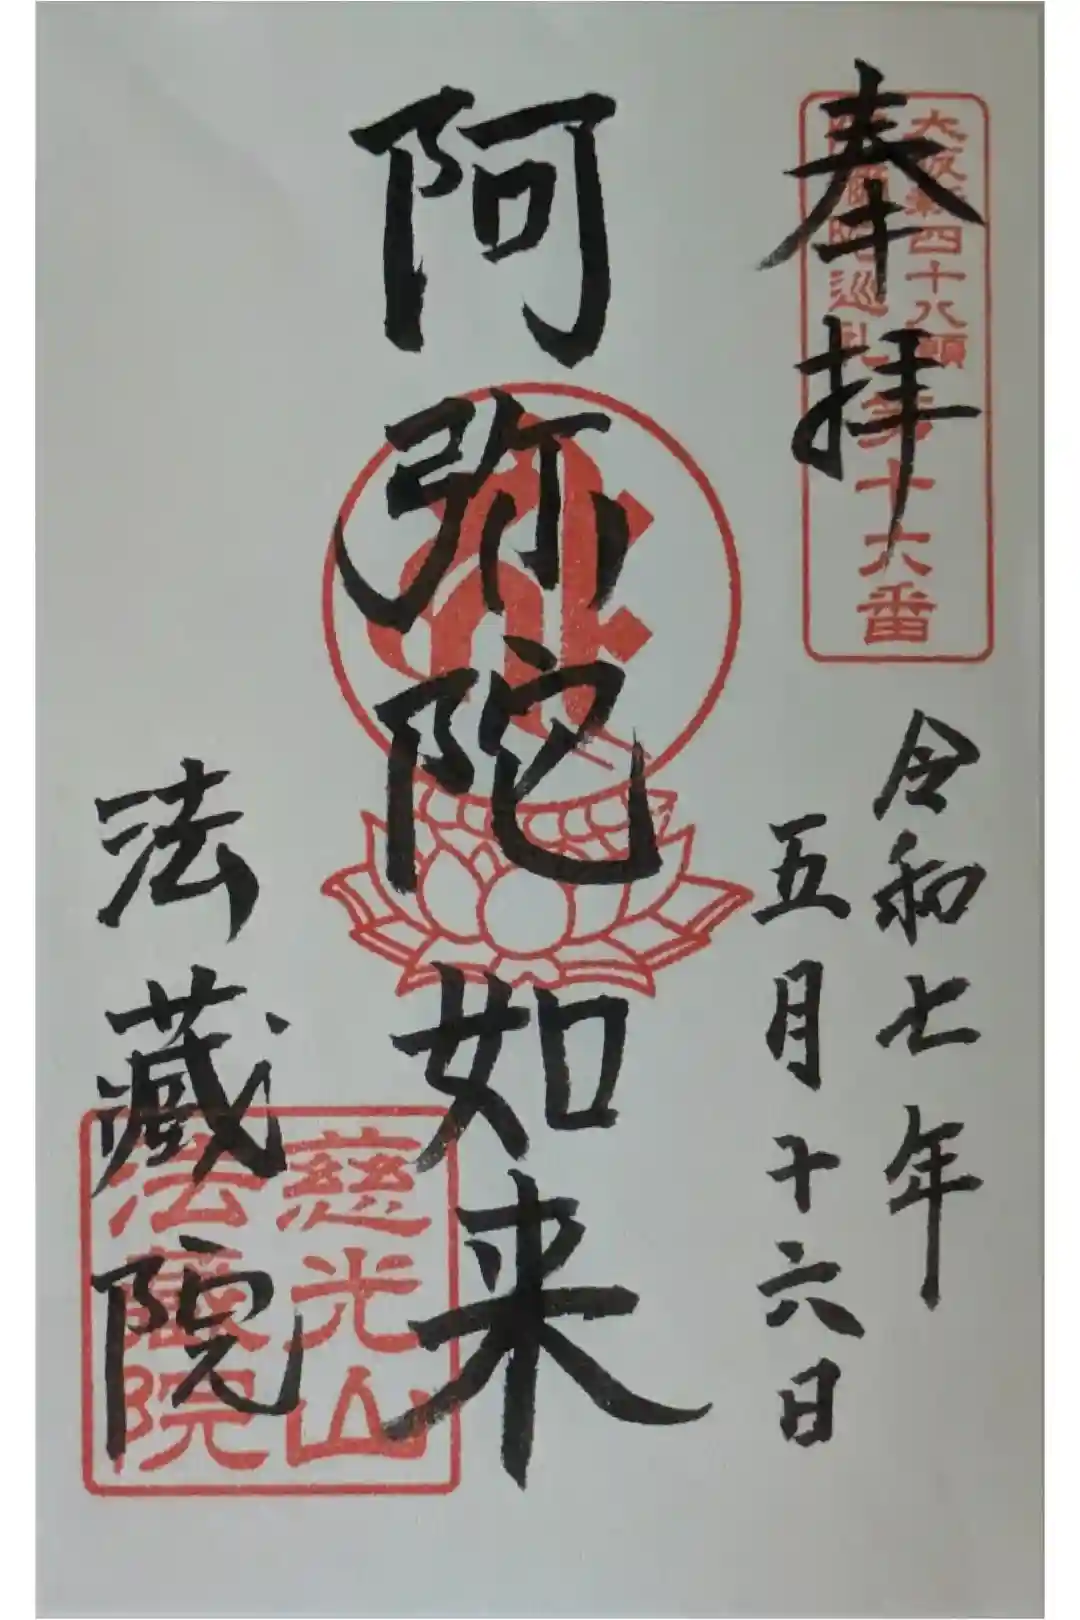 奉拝
大阪新四十八願
阿弥陀巡礼
第十六番
令和七年
五月十六日
阿弥陀如来
法蔵院
慈光山
法蔵院